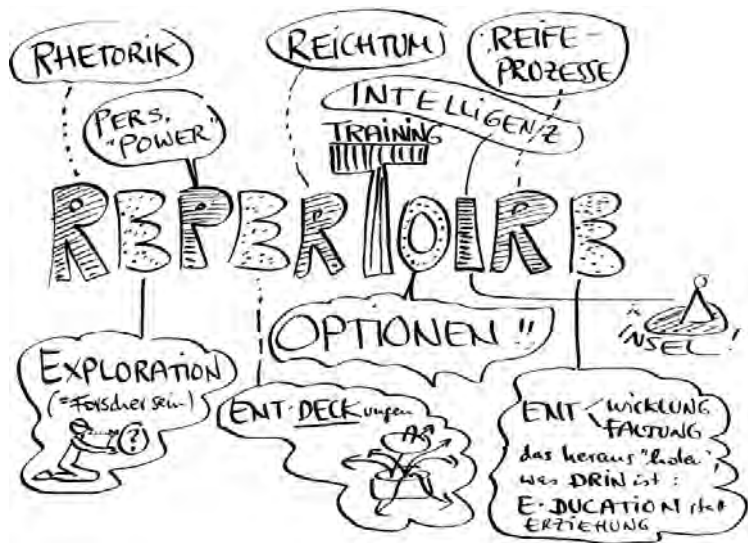 RHETORIK
REICHTUM
REIFE-
PROZESSE
PERS.
"POWER"
INTELLIGENZ
TRAINING
REPERTOIRE
OPTIONEN !!
"INSEL"
EXPLORATION
(=Forscher sein)
?
ENT·DECKungen
ENT WICKLUNG
FALTUNG
das heraus "holen",
was DRIN ist:
E·DUCATION statt
ERZIEHUNG